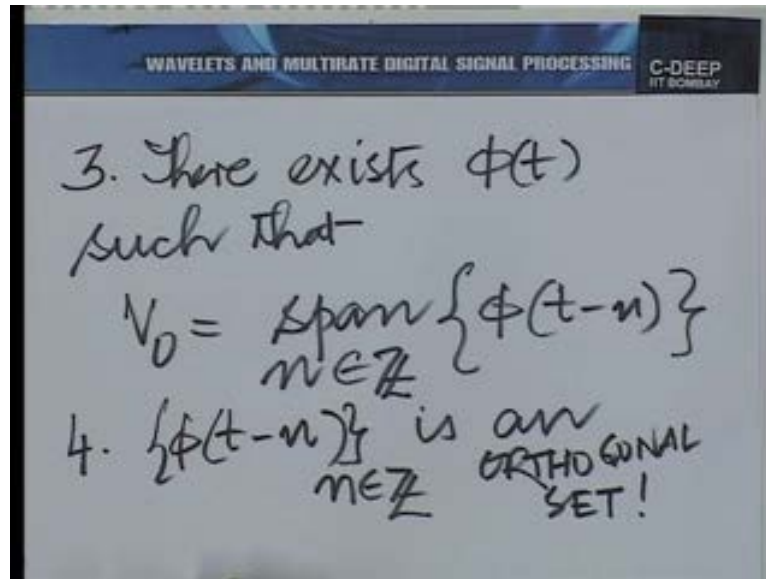 WAVELETS AND MULTIRATE DIGITAL SIGNAL PROCESSING
C-DEEP
IIT BOMBAY
3. There exists ϕ(t)
such that
V₀ = span {ϕ(t-n)}
n∈ℤ
4. {ϕ(t-n)} is an
n∈ℤ ORTHOGONAL
SET!